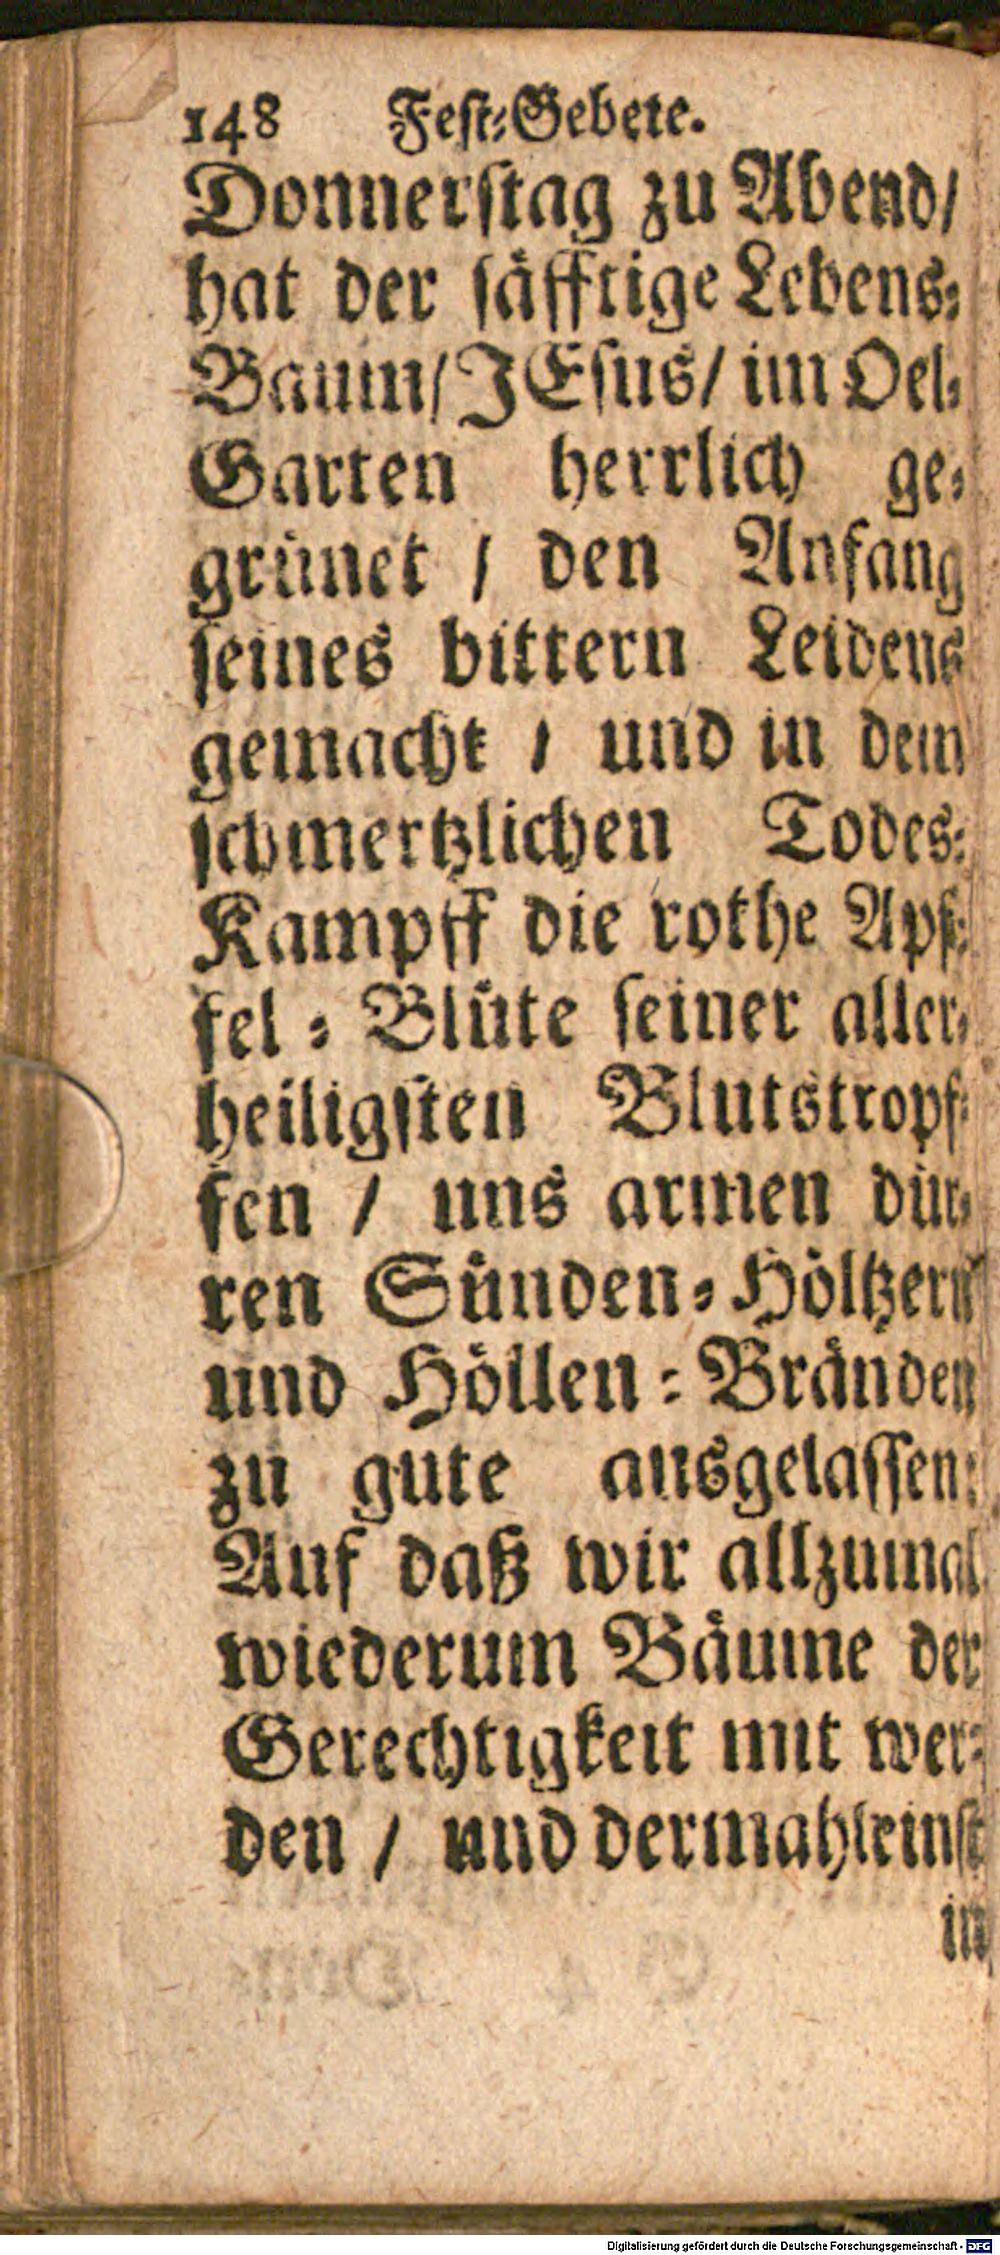 148 Feſt⸗Gebete.
Donnerſtag zu Abend/
hat der ſäfftige Lebens⸗
Baum/ JEſus/ im Oel⸗
Garten herrlich ge⸗
grünet / den Anfang
ſeines bittern Leidens
gemacht / und in dem
ſchmertzlichen Todes⸗
Kampff die rothe Apf⸗
fel⸗Blüte ſeiner aller⸗
heiligſten Blutstropf⸗
fen / uns armen dür⸗
ren Sünden⸗Höltzern
und Höllen⸗Bränden
zu gute ausgelaſſen:
Auf daß wir allzumal
wiederum Bäume der
Gerechtigkeit mit wer⸗
den / und dermahleinſt
in
Digitalisierung gefördert durch die Deutsche Forschungsgemeinschaft - DFG